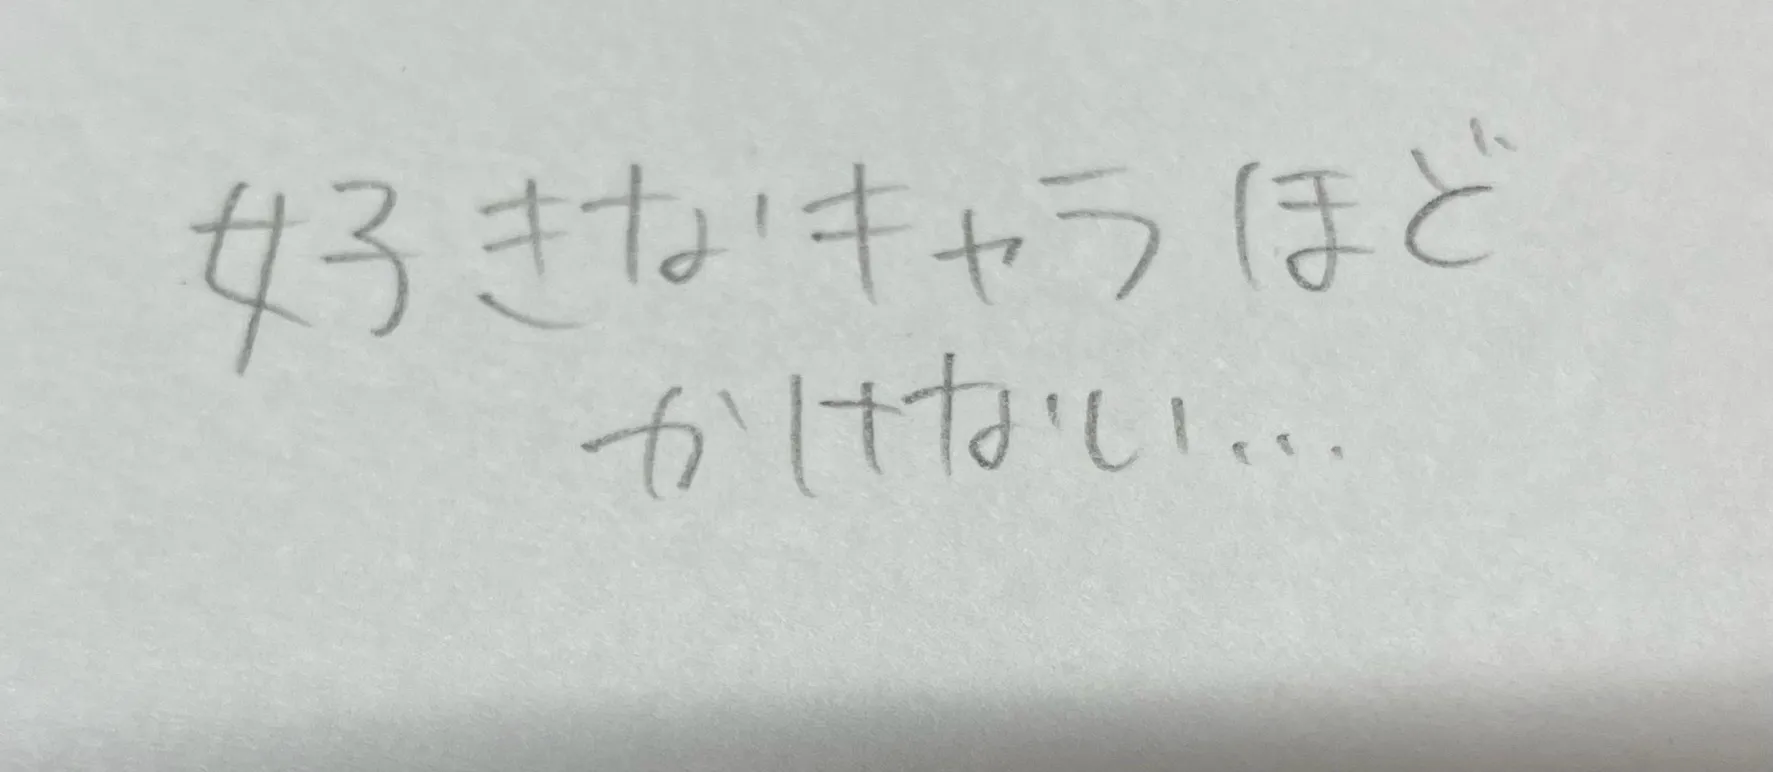 好きなキャラほど
かけない...